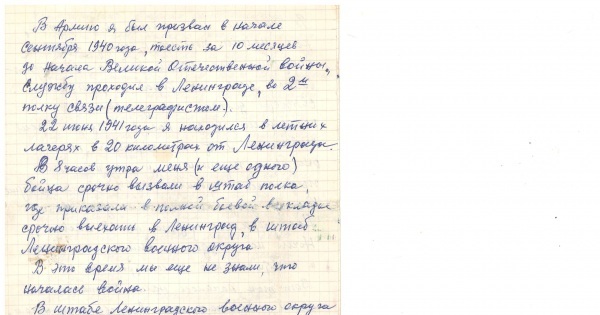 В Армию я был призван в начале
сентября 1940 года, тоесть за 10 месяцев
до начала Великой Отечественной войны,
службу проходил в Ленинграде, во 2ом
полку связи (телеграфистом).
22 июня 1941 года я находился в летних
лагерях в 20 километрах от Ленинграда.
В 8 часов утра меня (и еще одного)
бойца срочно вызвали в штаб полка,
где приказали в полной боевой выкладке
срочно выехать в Ленинград, в штаб
Ленинградского военного округа
В это время мы еще не знали, что
началась война.
В штабе Ленинградского военного округа